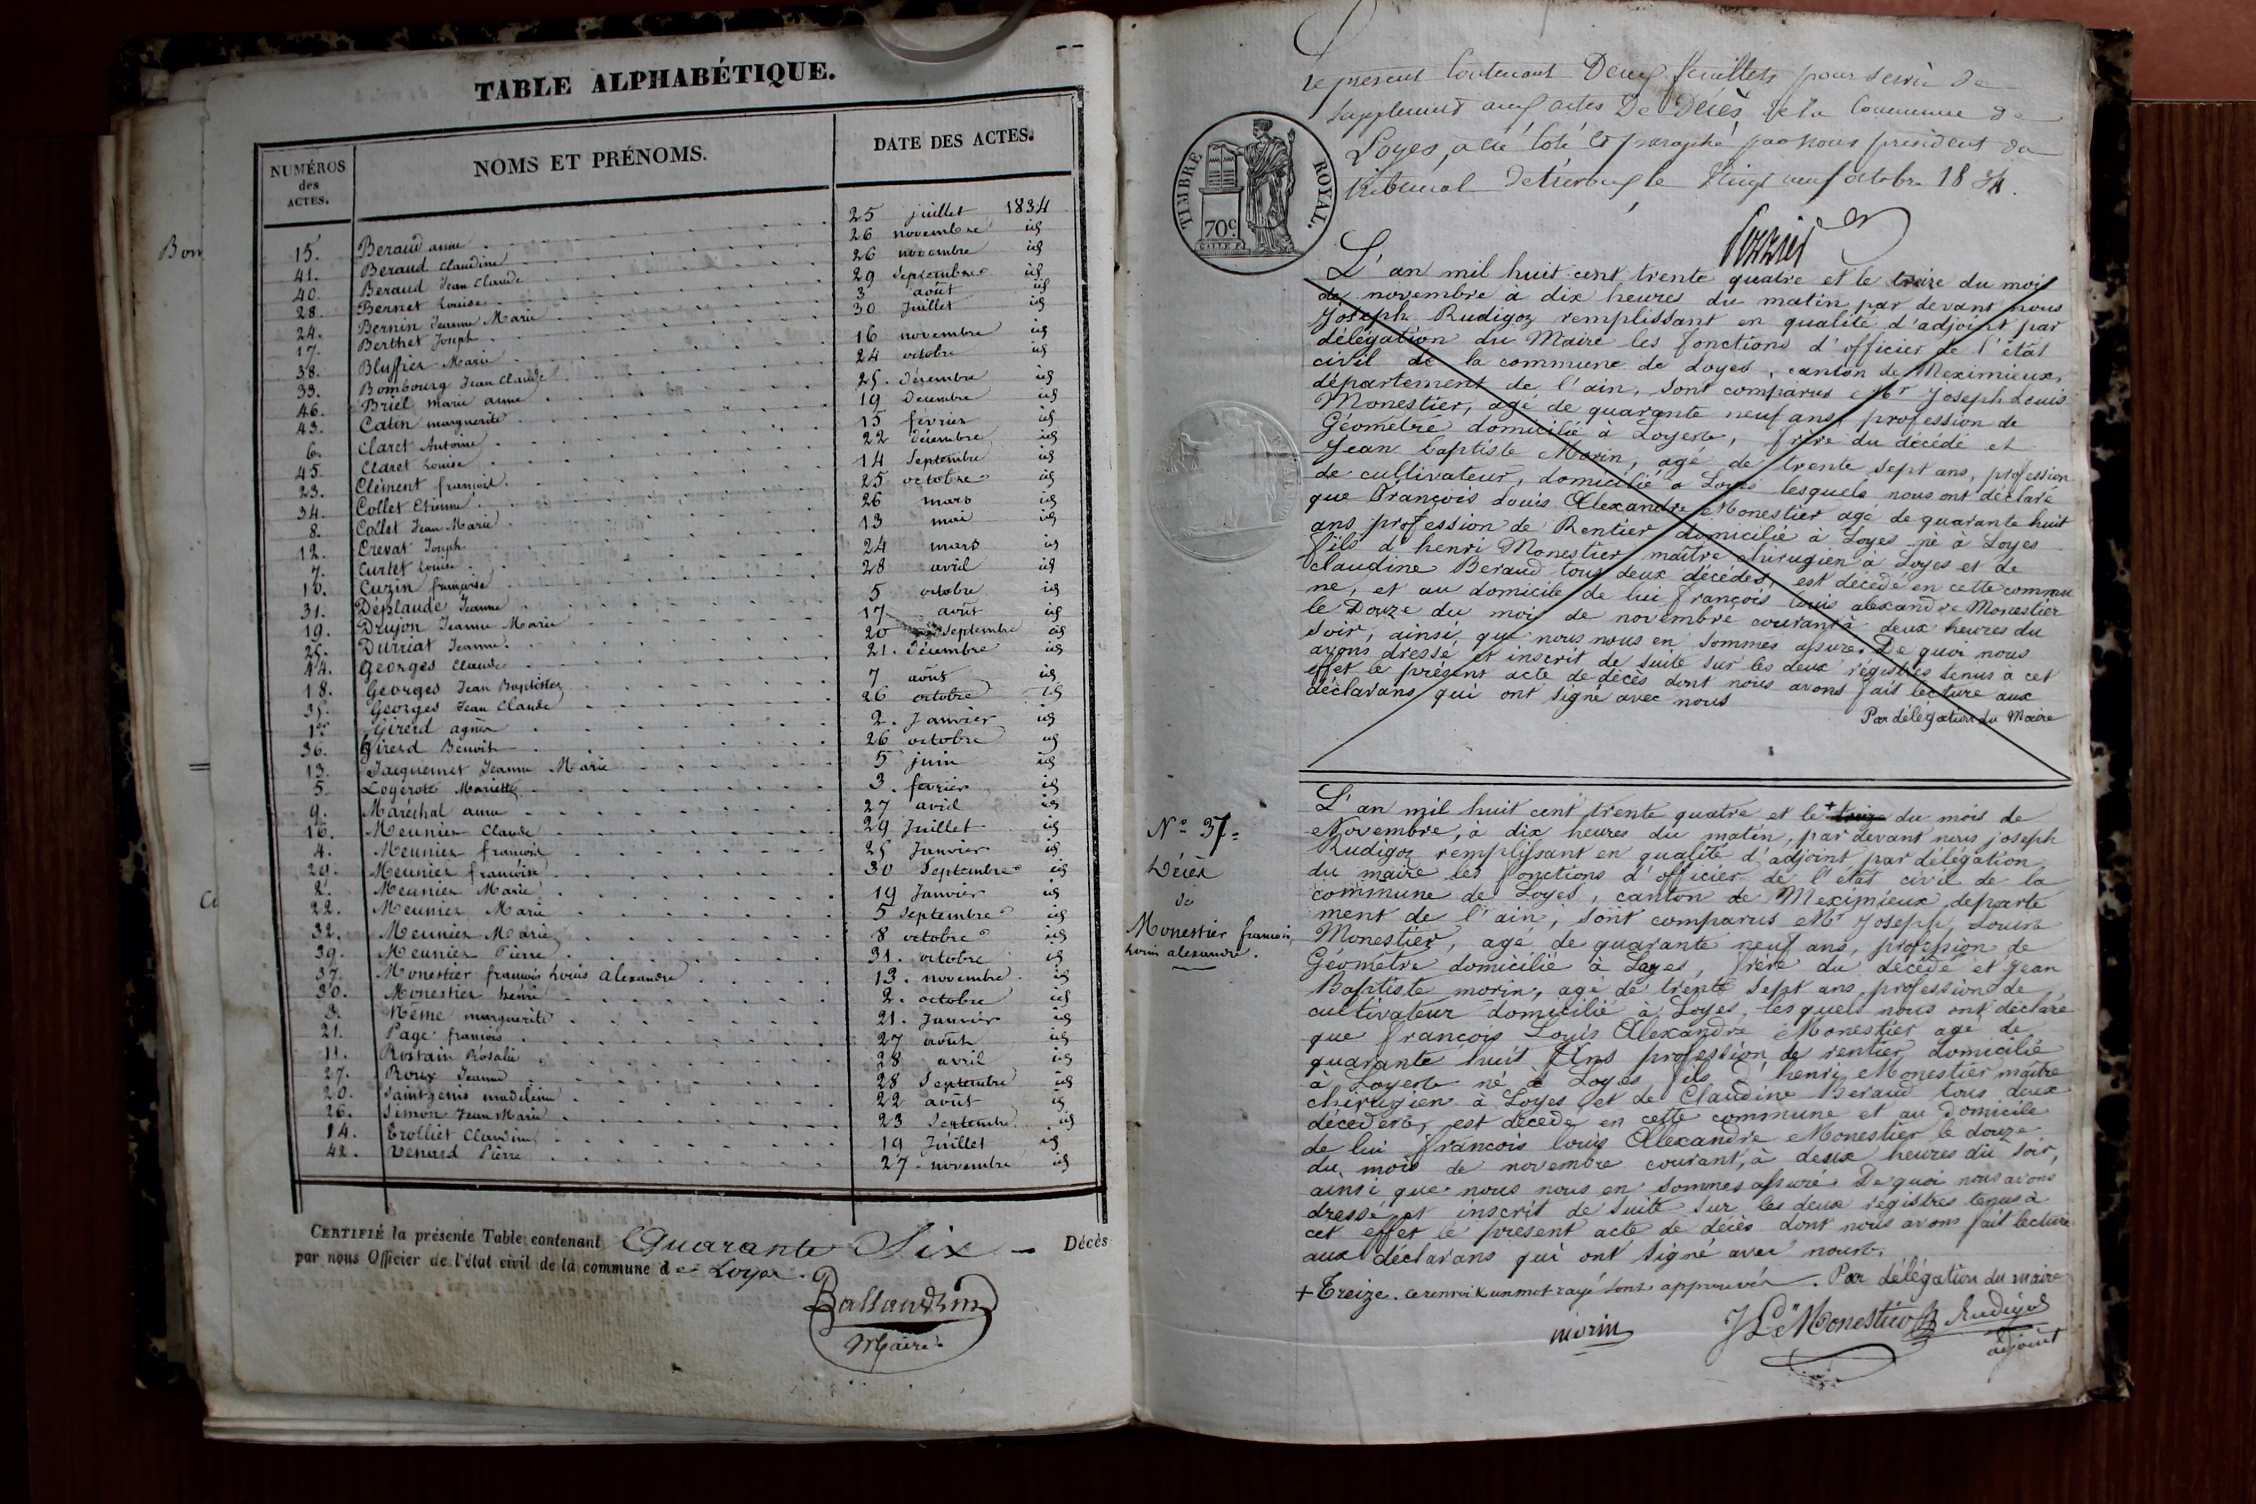 TABLE ALPHABÉTIQUE.
NUMÉROS des ACTES. NOMS ET PRÉNOMS. DATE DES ACTES.
15. Beraud anne 25 juillet 1834
41. Beraud Claudine 26 novembre id
40. Beraud Jean Claude 26 novembre id
28. Bernet Louise 29 Septembre id
24. Bernin Jeanne Marie 3 août id
17. Berthet Joseph 30 Juillet id
38. Bluffier Marie 16 novembre id
33. Bombourg Jean Claude 24 octobre id
46. Briel marie anne 25. Décembre id
43. Catin marguerite 19 Decembre id
6. Claret Antoine 15 février id
45. Claret Louise 22 Décembre id
23. Clément françois 14 Septembre id
34. Collet Etienne 25 octobre id
8. Collet Jean Marie 26 mars id
12. Crevat Joseph 13 mai id
7. Curtet Louise 24 mars id
10. Cuzin françoise 28 avril id
31. Déplaude Jeanne 5 octobre id
19. Drujon Jeanne Marie 17 août id
25. Durriat Jeanne 20 Septembre id
44. Georges Claude 21. Décembre id
18. Georges Jean Baptiste 7 août id
35. Georges Jean Claude 26 octobre id
1er Girerd agnès 2. Janvier id
36. Girerd Benoit 26 octobre id
13. Jacquemet Jeanne Marie 5 juin id
5. Logerot Mariette 3. fevrier id
9. Maréchal anne 27 avril id
16. Meunier Claude 29 Juillet id
4. Meunier françois 25 Janvier id
29. Meunier françoise 30 Septembre id
2. Meunier Marie 19 Janvier id
22. Meunier Marie 5 Septembre id
32. Meunier Marie 8 octobre id
39. Meunier Pierre 31. octobre id
37. Monestier françois Louis alexandre 13. novembre id
30. Monestier henri 2. octobre id
3. Même marguerite 21. Janvier id
21. Page françois 27 août id
11. Rostain Rosalie 28 avril id
27. Roux Jeanne 28 Septembre id
20. Saintgenis madeleine 22 août id
26. Simon Jean Marie 23 Septembre id
14. Trolliet Claudine 19 Juillet id
42. Venard Pierre 27. novembre id
CERTIFIÉ la présente Table contenant Quarante Six Décès
par nous Officier de l'état civil de la commune de Loyes.
Ballandrin
Maire
Bon
Le present Contenant Deux feuillets pour servir de
Supplement aux actes De Décès de la Commune de
Loyes, a été Coté & paraphé par nous président du
tribunal De trevoux le Vingt neuf octobre 1834.
TIMBRE ROYAL.
70c.
L'an mil huit cent trente quatre et le treize du mois
de novembre à dix heures du matin par devant nous
Joseph Rudigoz remplissant en qualité d'adjoint par
délégation du Maire les fonctions d'officier de l'état
civil de la commune de Loyes, canton de Meximieux,
département de l'ain, sont comparus Mr Joseph Louis
Monestier, agé de quarante neuf ans, profession de
Géomêtre domicilié à Loyes, frère du décédé et
Jean baptiste Morin, agé de trente sept ans, profession
de cultivateur, domicilié à Loyes lesquels nous ont déclaré
que François Louis Alexandre Monestier agé de quarante huit
ans profession de Rentier domicilié à Loyes né à Loyes
fils d'henri Monestier maître chirugien à Loyes et de
claudine Beraud tous deux décédés, est décédé en cette commu
ne, et au domicile de lui françois louis alexandre Monestier
le Douze du mois de novembre courant à deux heures du
soir, ainsi que nous nous en sommes assuré. De quoi nous
avons dressé et inscrit de suite sur les deux régistres tenus a cet
effet le présent acte de décès dont nous avons fait lecture aux
déclarans qui ont signé avec nous
Par délégation du Maire
No 37=
Décès
de
Monestier françois,
Louis alexandre.
L'an mil huit cent trente quatre et le + treize du mois de
Novembre, à dix heures du matin, par devant nous joseph
Rudigoz remplissant en qualité d'adjoint par délégation
du maire les fonctions d'officier de l'état civil de la
commune de Loyes, canton de Meximieux, departe
ment de l'ain, sont comparus Mr Joseph, Louis
Monestier, agé de quarante neuf ans, profession de
Géomêtre domicilié à Loyes, frère du décédé et Jean
Baptiste morin, agé de trente sept ans, profession de
cultivateur domicilié à Loyes, lesquels nous ont déclaré
que françois Louis Alexandre Monestier agé de
quarante huit Ans profession de rentier domicilié
à Loyes né à Loyes fils d'henri Monestier maître
chirugien à Loyes et de Claudine Beraud tous deux
décédés, est décédé en cette commune et au domicile
de lui françois louis Alexandre Monestier le douze
du mois de novembre courant, à deux heures du soir,
ainsi que nous nous en sommes assuré De quoi nous avons
dressé et inscrit de suite sur les deux régistres tenus à
cet effet le présent acte de décès dont nous avons fait lecture
aux déclarans qui ont signé avec nous.
+ Treize. ce renvoi & un mot rayé sont approuvés. Par délégation du maire
morin JLs Monestier Rudigoz
adjoint